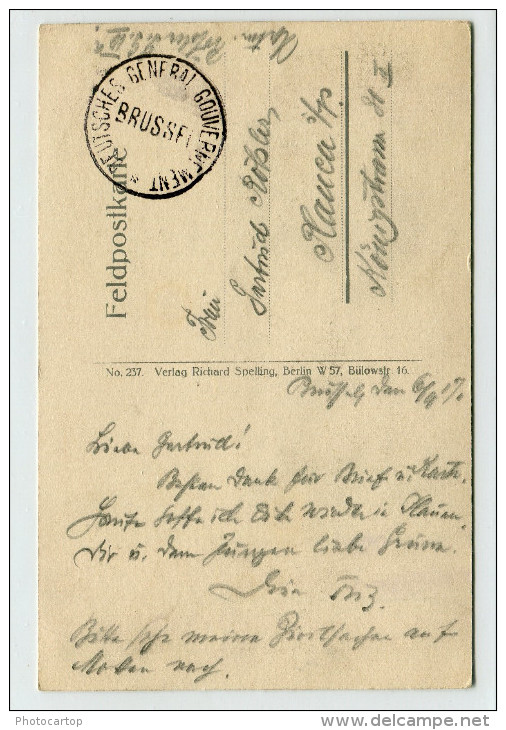 DEUTSCHES GENERAL GOUVERNEMENT *
BRUSSEL
Feldpostkarte
Frau
Gertrud
Plauen i/V.
Königstrasse
No. 237. Verlag Richard Spelling, Berlin W 57, Bülowstr. 16.
Brüssel, den 6/9 17.
Liebe Gertrud!
Besten Dank für Brief u. Karte.
Heute hoffe ich Dich wieder in Plauen.
Dir u. dem Jungen liebe Grüsse.
Dein Fritz
Bitte sehe meine Zivilsachen auf
Motten nach.
Photocartop
www.delcampe.net